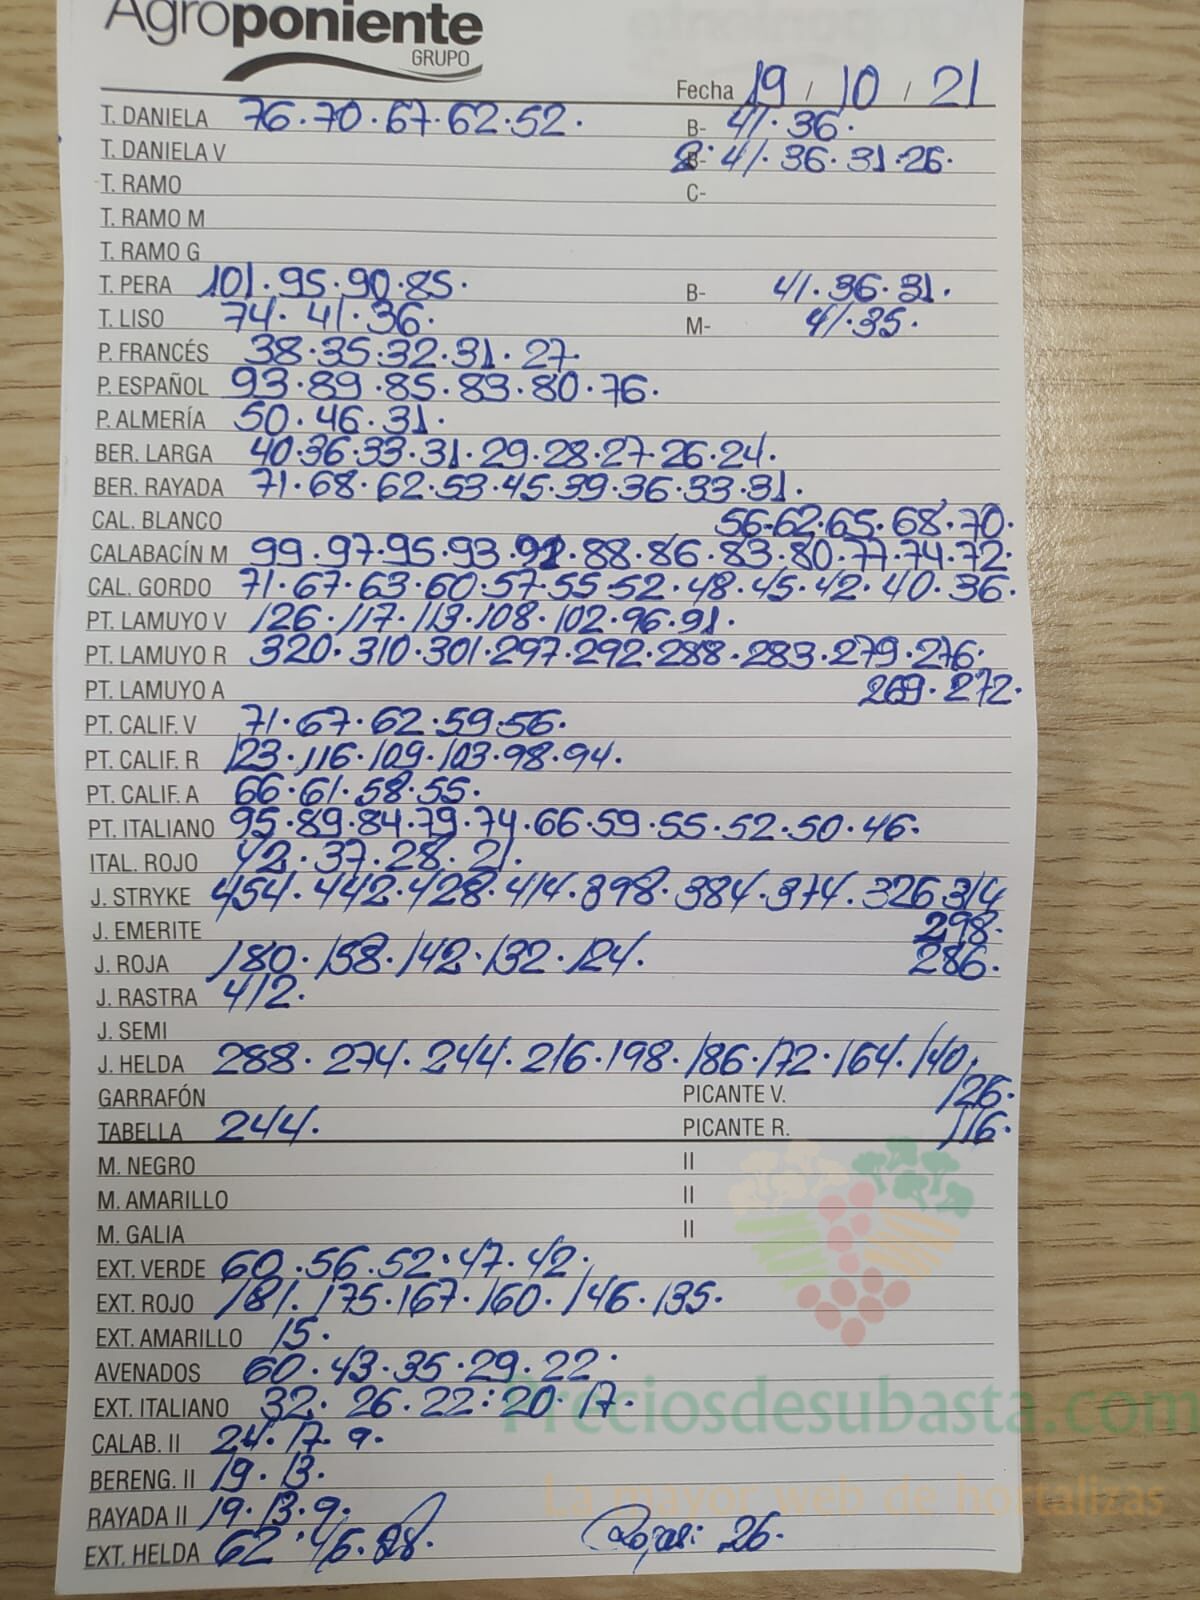 Agroponiente
GRUPO
Fecha 19 / 10 / 21
T. DANIELA 76·70·67·62·52· B- 41·36·
T. DANIELA V 41·36·31·26·
T. RAMO C-
T. RAMO M
T. RAMO G
T. PERA 101·95·90·85· B- 41·36·31·
T. LISO 74·41·36· M- 41·35·
P. FRANCÉS 38·35·32·31·27·
P. ESPAÑOL 93·89·85·83·80·76·
P. ALMERÍA 50·46·31·
BER. LARGA 40·36·33·31·29·28·27·26·24·
BER. RAYADA 71·68·62·53·45·39·36·33·31·
CAL. BLANCO 56·62·65·68·70·
CALABACÍN M 99·97·95·93·91·88·86·83·80·77·74·72·
CAL. GORDO 71·67·63·60·57·55·52·48·45·42·40·36·
PT. LAMUYO V 126·117·113·108·102·96·91·
PT. LAMUYO R 320·310·301·297·292·288·283·279·276·
PT. LAMUYO A 269·272·
PT. CALIF. V 71·67·62·59·56·
PT. CALIF. R 123·116·109·103·98·94·
PT. CALIF. A 66·61·58·55·
PT. ITALIANO 95·89·84·79·74·66·59·55·52·50·46·
ITAL. ROJO 42·37·28·21·
J. STRYKE 454·442·428·414·398·384·374·326·314
J. EMERITE 298·
J. ROJA 180·158·142·132·124· 286·
J. RASTRA 412·
J. SEMI
J. HELDA 288·274·244·216·198·186·172·164·140·
GARRAFÓN PICANTE V. 126·
TABELLA 244· PICANTE R. 116·
M. NEGRO II
M. AMARILLO II
M. GALIA II
EXT. VERDE 60·56·52·47·42·
EXT. ROJO 181·175·167·160·146·135·
EXT. AMARILLO 15·
AVENADOS 60·43·35·29·22·
EXT. ITALIANO 32·26·22·20·17·
Preciosdesubasta.com
CALAB. II 24·17·9·
BERENG. II 19·13·
La mayor web de hortalizas
RAYADA II 19·13·9·
EXT. HELDA 62·46· Rojas: 26·